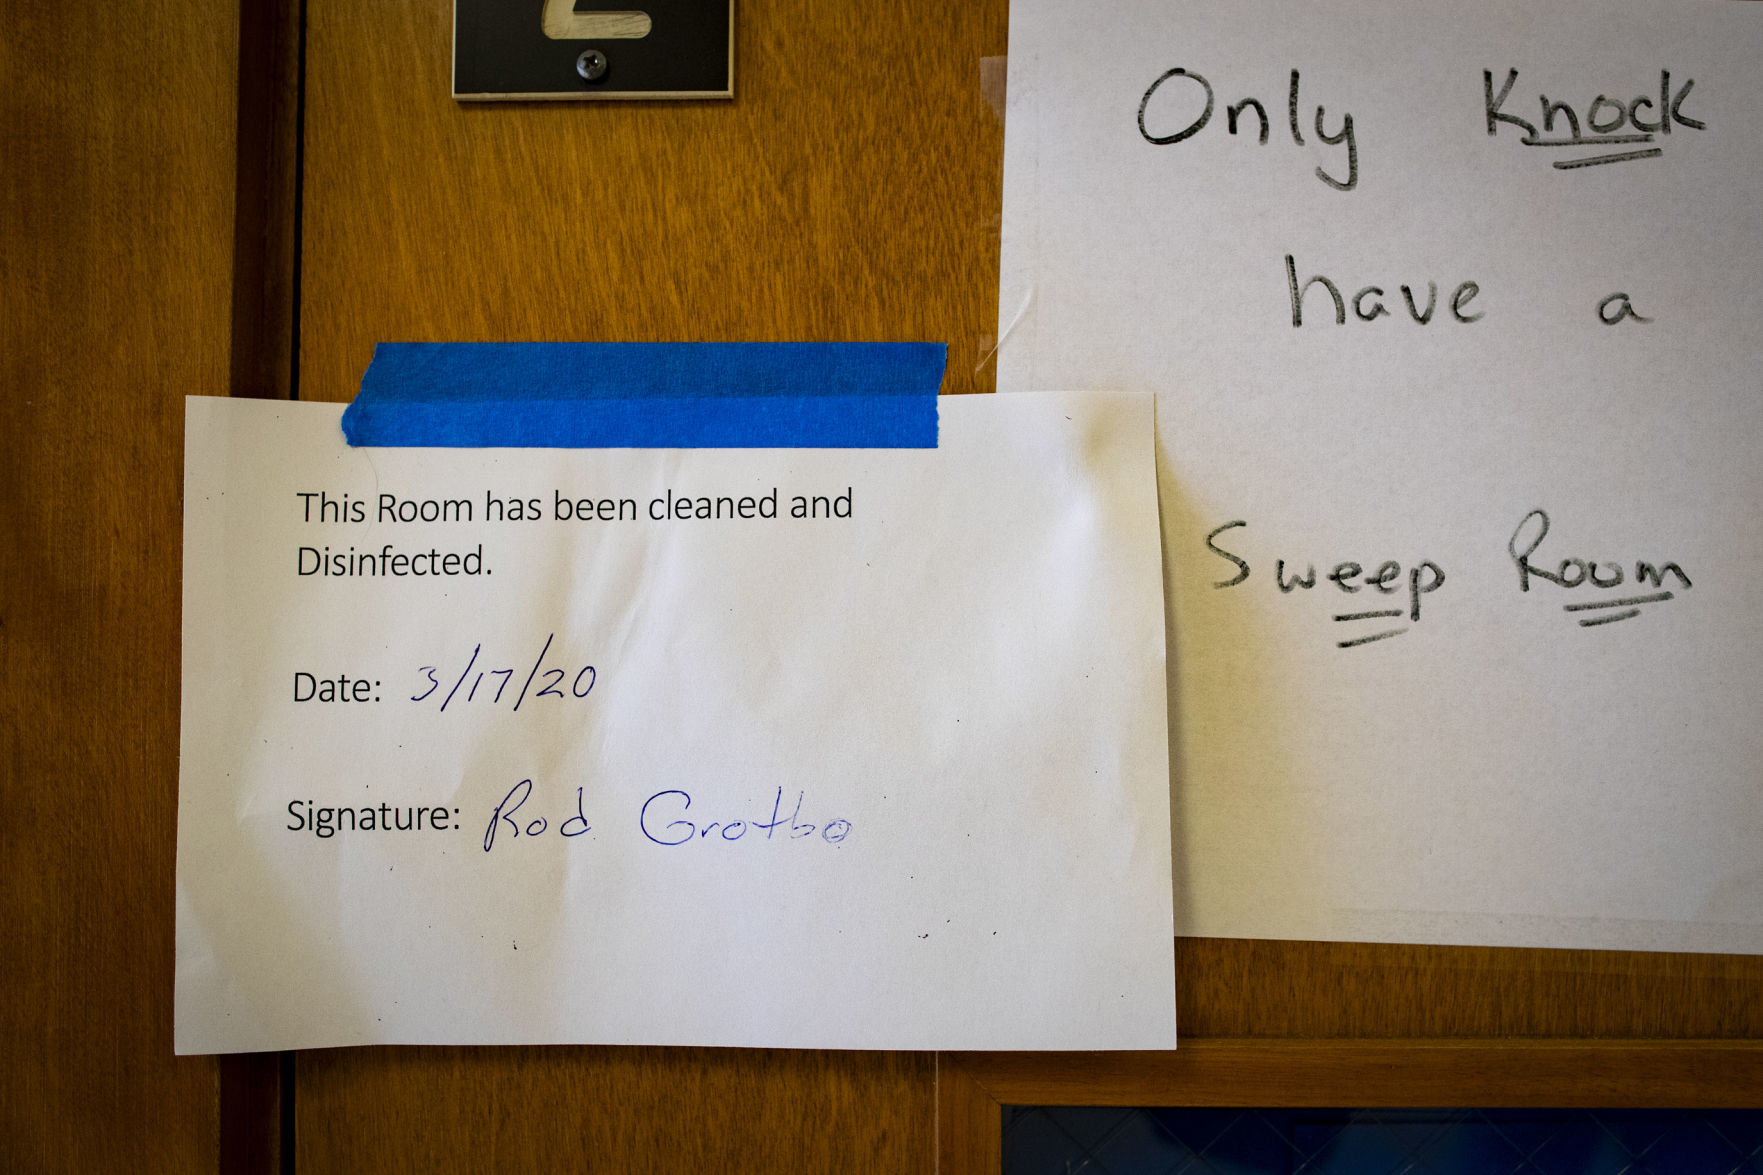 Only Knock
have a
Sweep Room
This Room has been cleaned and
Disinfected.
Date: 3/17/20
Signature: Rod Grotbo